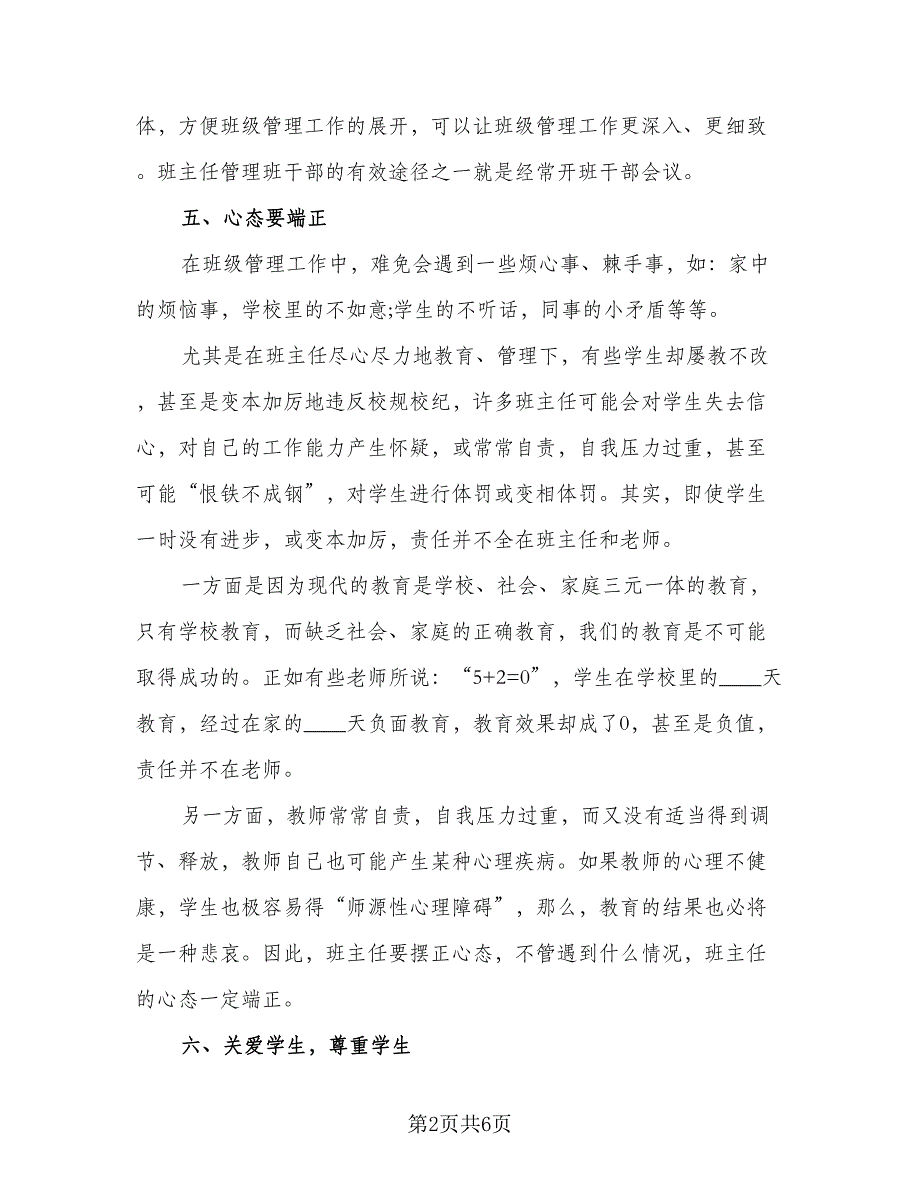 体，方便班级管理工作的展开，可以让班级管理工作更深入、更细致
。班主任管理班干部的有效途径之一就是经常开班干部会议。
五、心态要端正
在班级管理工作中，难免会遇到一些烦心事、棘手事，如：家中
的烦恼事，学校里的不如意;学生的不听话，同事的小矛盾等等。
尤其是在班主任尽心尽力地教育、管理下，有些学生却屡教不改
，甚至是变本加厉地违反校规校纪，许多班主任可能会对学生失去信
心，对自己的工作能力产生怀疑，或常常自责，自我压力过重，甚至
可能“恨铁不成钢”，对学生进行体罚或变相体罚。其实，即使学生
一时没有进步，或变本加厉，责任并不全在班主任和老师。
一方面是因为现代的教育是学校、社会、家庭三元一体的教育，
只有学校教育，而缺乏社会、家庭的正确教育，我们的教育是不可能
取得成功的。正如有些老师所说：“5+2=0”，学生在学校里的____天
教育，经过在家的____天负面教育，教育效果却成了0，甚至是负值，
责任并不在老师。
另一方面，教师常常自责，自我压力过重，而又没有适当得到调
节、释放，教师自己也可能产生某种心理疾病。如果教师的心理不健
康，学生也极容易得“师源性心理障碍”，那么，教育的结果也必将
是一种悲哀。因此，班主任要摆正心态，不管遇到什么情况，班主任
的心态一定端正。
六、关爱学生，尊重学生
第2页共6页